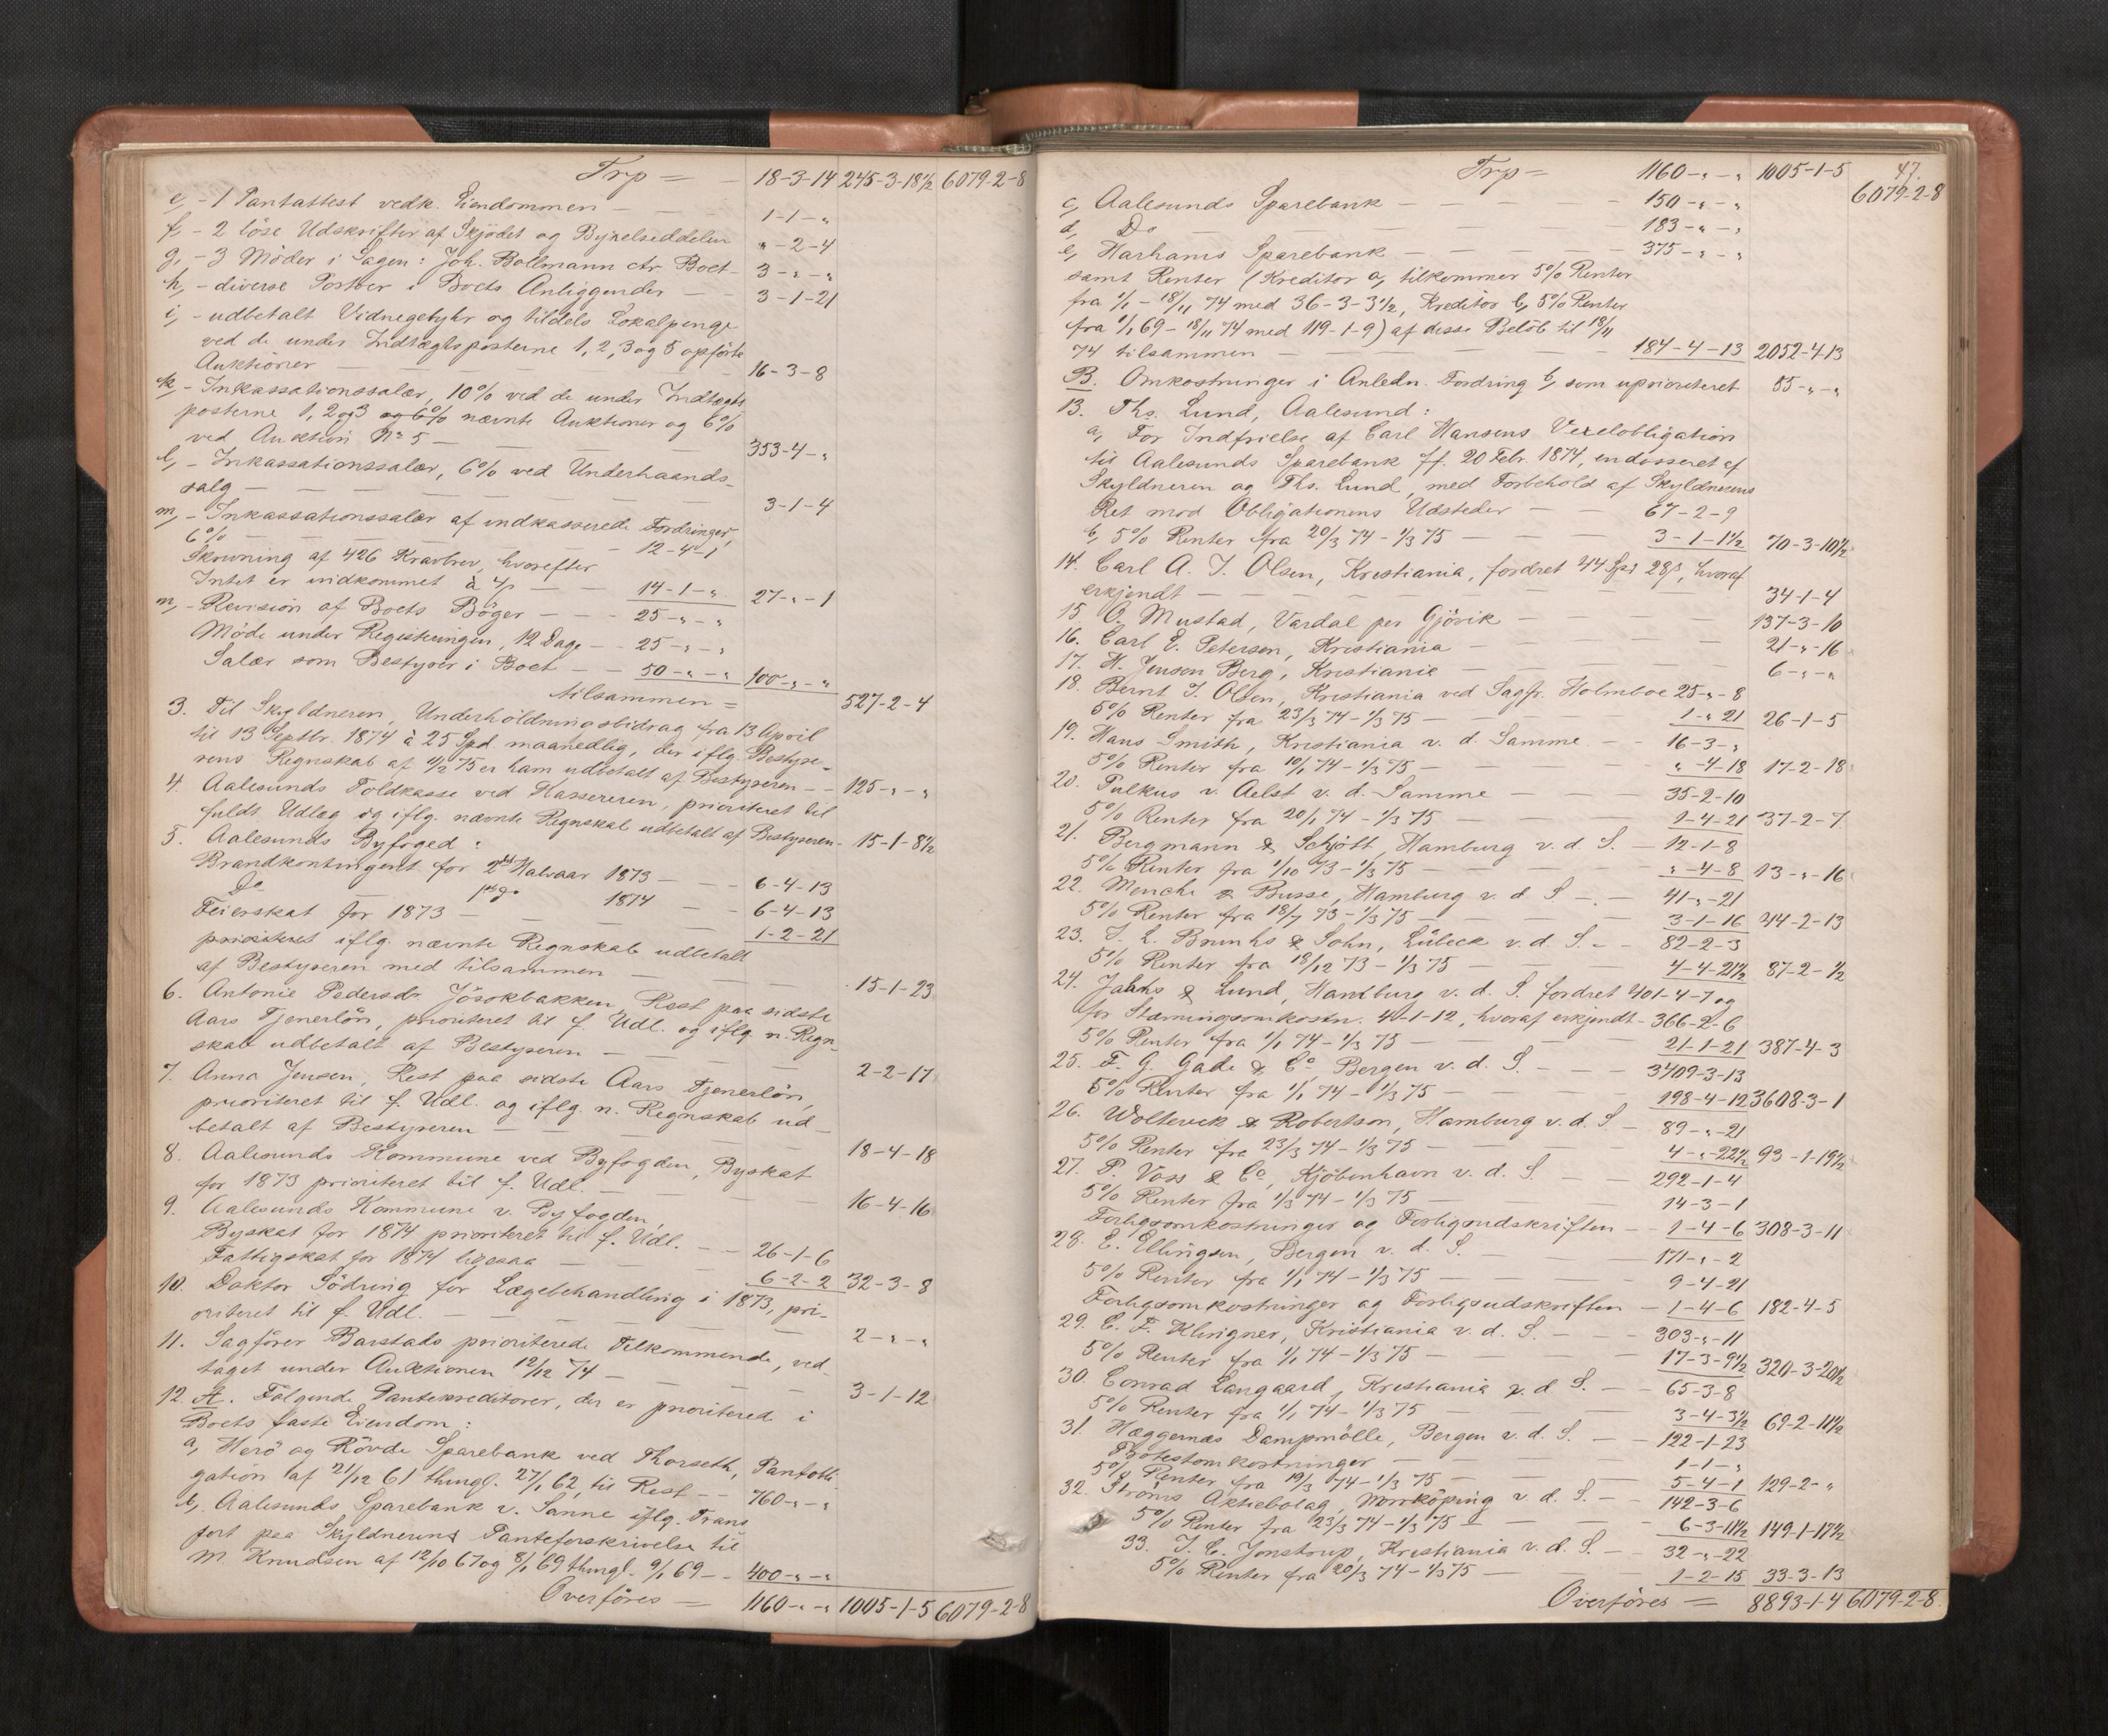 Trp = - 18-3-14 245-3-18½ 6079-2-8
e, - 1 Pantattest vedk. Eiendommen - - - 1-1-"
f, - 2 löse Udskrifter af Skjödet og Byxelseddelen "-2-4
g, - 3 Möder i Sagen: Joh. Bollmann ctr. Boet - 3-"-"
h, - diverse Portoer i Boets Anliggender - - 3-1-21
i, - udbetalt Vidnegebyhr og tildels Lokalpenge
ved de under Indtægtsposterne 1, 2, 3 og 5 opförte
Auktioner - - - - 16-3-8
k, - Inkassationssalær, 10% ved de under Indtægts
posterne 1, 2 og 3 og 6% nævnte Auktioner og 6%
ved Auktion No 5 - - - - 353-4-"
l, - Inkassationssalær, 6% ved Underhaands-
salg - - - - - 3-1-4
m, - Inkassationssalær af indkasserede Fordringer,
6% - - - - - 12-4-1
Skrivning af 426 Kravbrev, hvorefter
Intet er indkommet à 4ß - - 14-1-" 27-"-1
n, - Revision af Boets Böger - - - 25-"-"
Möde under Registeringen, 12 Dage - - 25-"-"
Salær som Bestyrer i Boet - - 50-"-" 100-"-"
tilsammen = 527-2-4
3. Til Skyldneren, Underholdningsbidrag fra 13 April
til 13 Septbr. 1874 à 25 Spd. maanedlig, der iflg. Bestyre-
rens Regnskab af 11/2 75 er ham udbetalt af Bestyreren - - 125-"-"
4. Aalesunds Toldkasse ved Kassereren, prioriteret til
fuldt Udlæg og iflg. nævnte Regnskab udbetalt af Bestyreren - 15-1-8½
5. Aalesunds Byfoged:
Brandkontingent for 2det Halvaar 1873 - - - 6-4-13
Do 1ste do 1874 - - 6-4-13
Feierskat for 1873 - - - - 1-2-21
prioriteret iflg. nævnte Regnskab udbetalt
af Bestyreren med tilsammen - - - 15-1-23
6. Antonie Pedersdr. Jösokbakken, Rest paa sidste
Aars Tjenerlön, prioriteret til f. Udl. og iflg. n. Regn-
skab udbetalt af Bestyreren - - - 2-2-17
7. Anna Jensen, Rest paa sidste Aars Tjenerlön,
prioriteret til f. Udl. og iflg. n. Regnskab ud-
betalt af Bestyreren - - - - 18-4-18
8. Aalesunds Kommune ved Byfogden, Byskat
for 1873 prioriteret til f. Udl. - - - 16-4-16
9. Aalesunds Kommune v. Byfogden,
Byskat for 1874 prioriteret til f. Udl. - - 26-1-6
Fattigskat for 1874 ligesaa - - - 6-2-2 32-3-8
10. Doktor Södring for Lægebehandling i 1873, pri-
oriteret til f. Udl. - - - - 2-"-"
11. Sagförer Barstads prioriterede Tilkommende, ved-
taget under Auktionen 12/12 74 - - - 3-1-12
12. A. Fölgende Pantekreditorer, der er prioriterede i
Boets faste Eiendom:
a, Herö og Rövde Sparebank ved Thorseth, Pantobli-
gation af 21/12 61 thingl. 27/1 62, til Rest - - 760-"-"
b, Aalesunds Sparebank v. Sanne iflg. Trans
port paa Skyldnerens Panteforskrivelse til
M. Knudsen af 12/10 67 og 8/1 69 thingl. 9/1 69 - - 400-"-"
Overföres = 1160-"-" 1005-1-5 6079-2-8
47.
Trp = 1160-"-" 1005-1-5 6079-2-8
c, Aalesunds Sparebank - - - - 150-"-"
d, Do - - - 183-"-"
e, Harhams Sparebank - - - 375-"-"
samt Renter (Kreditor a, tilkommer 5% Renter
fra 1/1 - 18/11 74 med 36-3-3½, Kreditor b, 5% Renter
fra 1/1 69 - 18/11 74 med 119-1-9) af disse Belöb til 18/11
74 tilsammen - - - - 184-4-13 2052-4-13
B. Omkostninger i Anledn. Fordring b, som uprioriteret 55-"-"
13. Ths. Lund, Aalesund:
a, For Indfrielse af Carl Hansens Vexelobligation
til Aalesunds Sparebank ff. 20 Febr. 1874, endosseret af
Skyldneren og Ths. Lund, med Forbehold af Skyldnerens
Ret mod Obligationens Udsteder - - 67-2-9
b, 5% Renter fra 20/3 74 - 1/3 75 - - - 3-1-1½ 70-3-10½
14. Carl A. J. Olsen, Kristiania, fordret 44 Spd 28ß, hvoraf
erkjendt - - - - - 34-1-4
15. O. Mustad, Vardal per Gjövik - - - 137-3-10
16. Carl E. Petersen, Kristiania - - - 21-"-16
17. H. Jensen Berg, Kristiania - - - 6-"-"
18. Bernt J. Olsen, Kristiania ved Sagfr. Holmboe 25-"-8
5% Renter fra 23/3 74 - 1/3 75 - - - 1-"-21 26-1-5
19. Hans Smith, Kristiania v. d. Samme - - 16-3-"
5% Renter fra 10/1 74 - 1/3 75 - - - "-4-18 17-2-18
20. Pulkus v. Aelst v. d. Samme - - - 35-2-10
5% Renter fra 20/1 74 - 1/3 75 - - - 1-4-21 37-2-7
21. Bergmann & Schjött, Hamburg v. d. S. - 12-1-8
5% Renter fra 1/10 73 - 1/3 75 - - - "-4-8 13-"-16
22. Menche & Busse, Hamburg v. d. S. - - 41-"-21
5% Renter fra 18/7 73 - 1/3 75 - - - 3-1-16 44-2-13
23. J. L. Bruhns & Sohn, Lübeck v. d. S. - - 82-2-3
5% Renter fra 18/12 73 - 1/3 75 - - - 4-4-21½ 87-2-½
24. Jahns & Lund, Hamburg v. d. S. fordret 401-4-7 og
for Stævningsomkostn. 4-1-12, hvoraf erkjendt - 366-2-6
5% Renter fra 1/1 74 - 1/3 75 - - - 21-1-21 387-4-3
25. F. G. Gade & Co, Bergen v. d. S. - - - 3409-3-13
5% Renter fra 1/1 74 - 1/3 75 - - - 198-4-12 3608-3-1
26. Woltereck & Robertson, Hamburg v. d. S. - 89-"-21
5% Renter fra 23/3 74 - 1/3 75 - - - 4-"-22½ 93-1-19½
27. P. Voss & Co, Kjöbenhavn v. d. S. - - 292-1-4
5% Renter fra 1/3 74 - 1/3 75 - - - 14-3-1
Forligsomkostninger og Forligsudskriften - - 1-4-6 308-3-11
28. E. Ellingsen, Bergen v. d. S. - - - 171-"-2
5% Renter fra 1/1 74 - 1/3 75 - - - 9-4-21
Forligsomkostninger og Forligsudskriften - 1-4-6 182-4-5
29. C. F. Klingner, Kristiania v. d. S. - - 303-"-11
5% Renter fra 1/1 74 - 1/3 75 - - - 17-3-9½ 320-3-20½
30. Conrad Langaard, Kristiania v. d. S. - - 65-3-8
5% Renter fra 1/1 74 - 1/3 75 - - - 3-4-3½ 69-2-11½
31. Hæggernæs Dampmölle, Bergen v. d. S. - - 122-1-23
Protestomkostninger - - - 1-1-"
5% Renter fra 19/3 74 - 1/3 75 - - - 5-4-1 129-2-"
32. Ströms Aktiebolag, Norrköping v. d. S. - - 142-3-6
5% Renter fra 23/3 74 - 1/3 75 - - - 6-3-11½ 149-1-17½
33. J. C. Jonstrup, Kristiania v. d. S. - 32-"-22
5% Renter fra 20/3 74 - 1/3 75 - - - 1-2-15 33-3-13
Overföres = 8893-1-4 6079-2-8